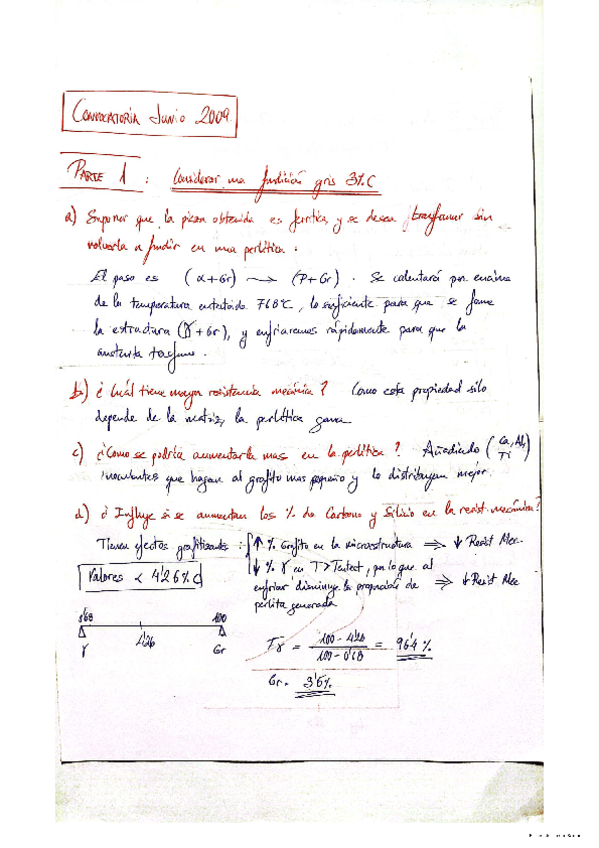 CONVOCATORIA Junio 2009.
PARTE 1 : Considerar una fundición gris 3% C
a) Suponer que la pieza obtenida es ferrítica y se desea transformar sin
volverla a fundir en una perlítica :
El paso es (α+Gr) ⟶ (P+Gr) . Se calentará por encima
de la temperatura eutectoide 768ºC, lo suficiente para que se forme
la estructura (γ+Gr), y enfriaremos rápidamente para que la
austenita
b) ¿Cuál tiene mayor resistencia mecánica? Como esta propiedad sólo
depende de la matriz, la perlítica gana.
c) ¿Como se podría aumentarla mas en la perlítica? Añadiendo (Ca, Al, Ti)
inoculantes que hagan al grafito mas pequeño y lo distribuyan mejor.
d) ¿Influye si se aumentan los % de Carbono y Silicio en la resist. mecánica?
Tienen efectos grafitizantes : ↑ % Grafito en la microestructura ⟹ ↓ Resist Mec.
Valores < 4'26% C
↓ % γ en T > Teutect, por lo que al
enfriar disminuye la proporción de ⟹ ↓ Resist Mec
perlita generada
0'68 100
4'26
γ Gr
Tγ = 100 - 4'26 / 100 - 0'68 = 96'4 %
Gr. 3'6%